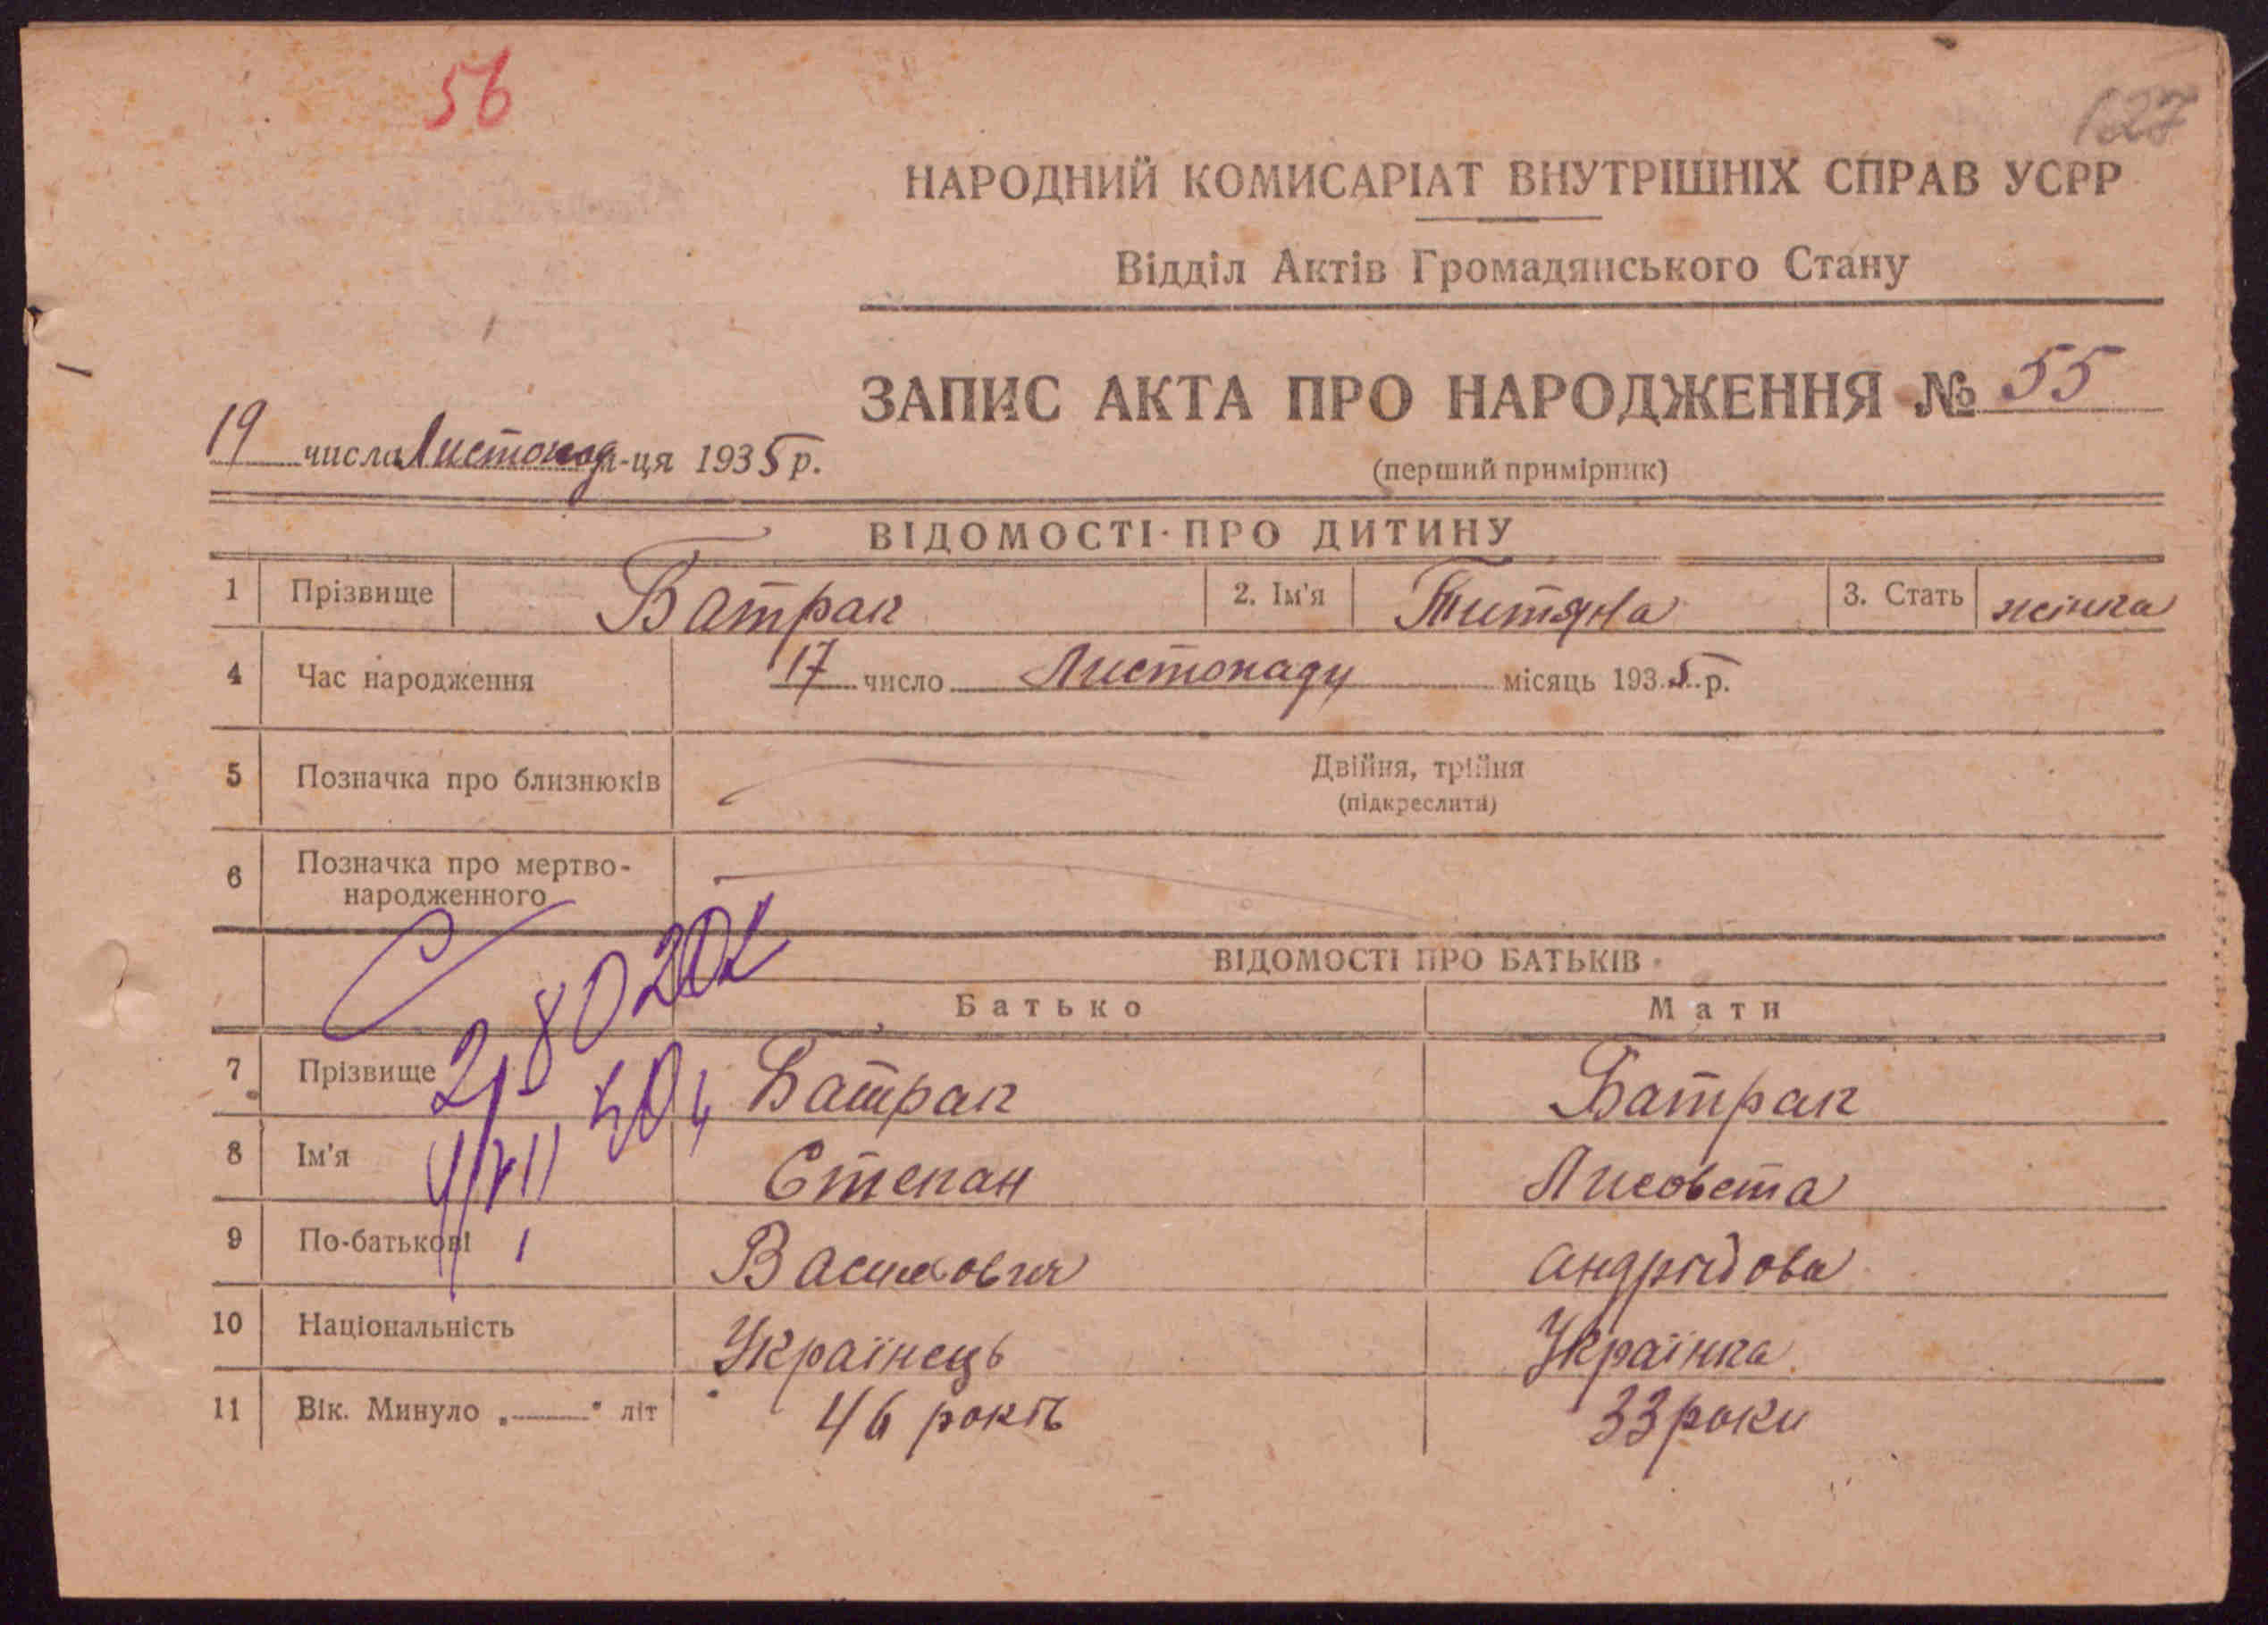 56
127
НАРОДНИЙ КОМИСАРІАТ ВНУТРІШНІХ СПРАВ УСРР
Відділ Актів Громадянського Стану
ЗАПИС АКТА ПРО НАРОДЖЕННЯ № 55
19 числа Листопад м-ця 1935 р.
(перший примірник)
ВІДОМОСТІ ПРО ДИТИНУ
1 Прізвище Батрак 2. Ім'я Титяна 3. Стать жінка
4 Час народження 17 число Листопаду місяць 1935 р.
5 Позначка про близнюків Двійня, трійня
(підкреслити)
6 Позначка про мертво-
народженного
ВІДОМОСТІ ПРО БАТЬКІВ
Батько Мати
7 Прізвище Батрак Батрак
8 Ім'я Степан Лисовета
9 По-батькові Василовия Андрійова
10 Національність Українець Українка
11 Вік. Минуло „——" літ 46 років 33 роки